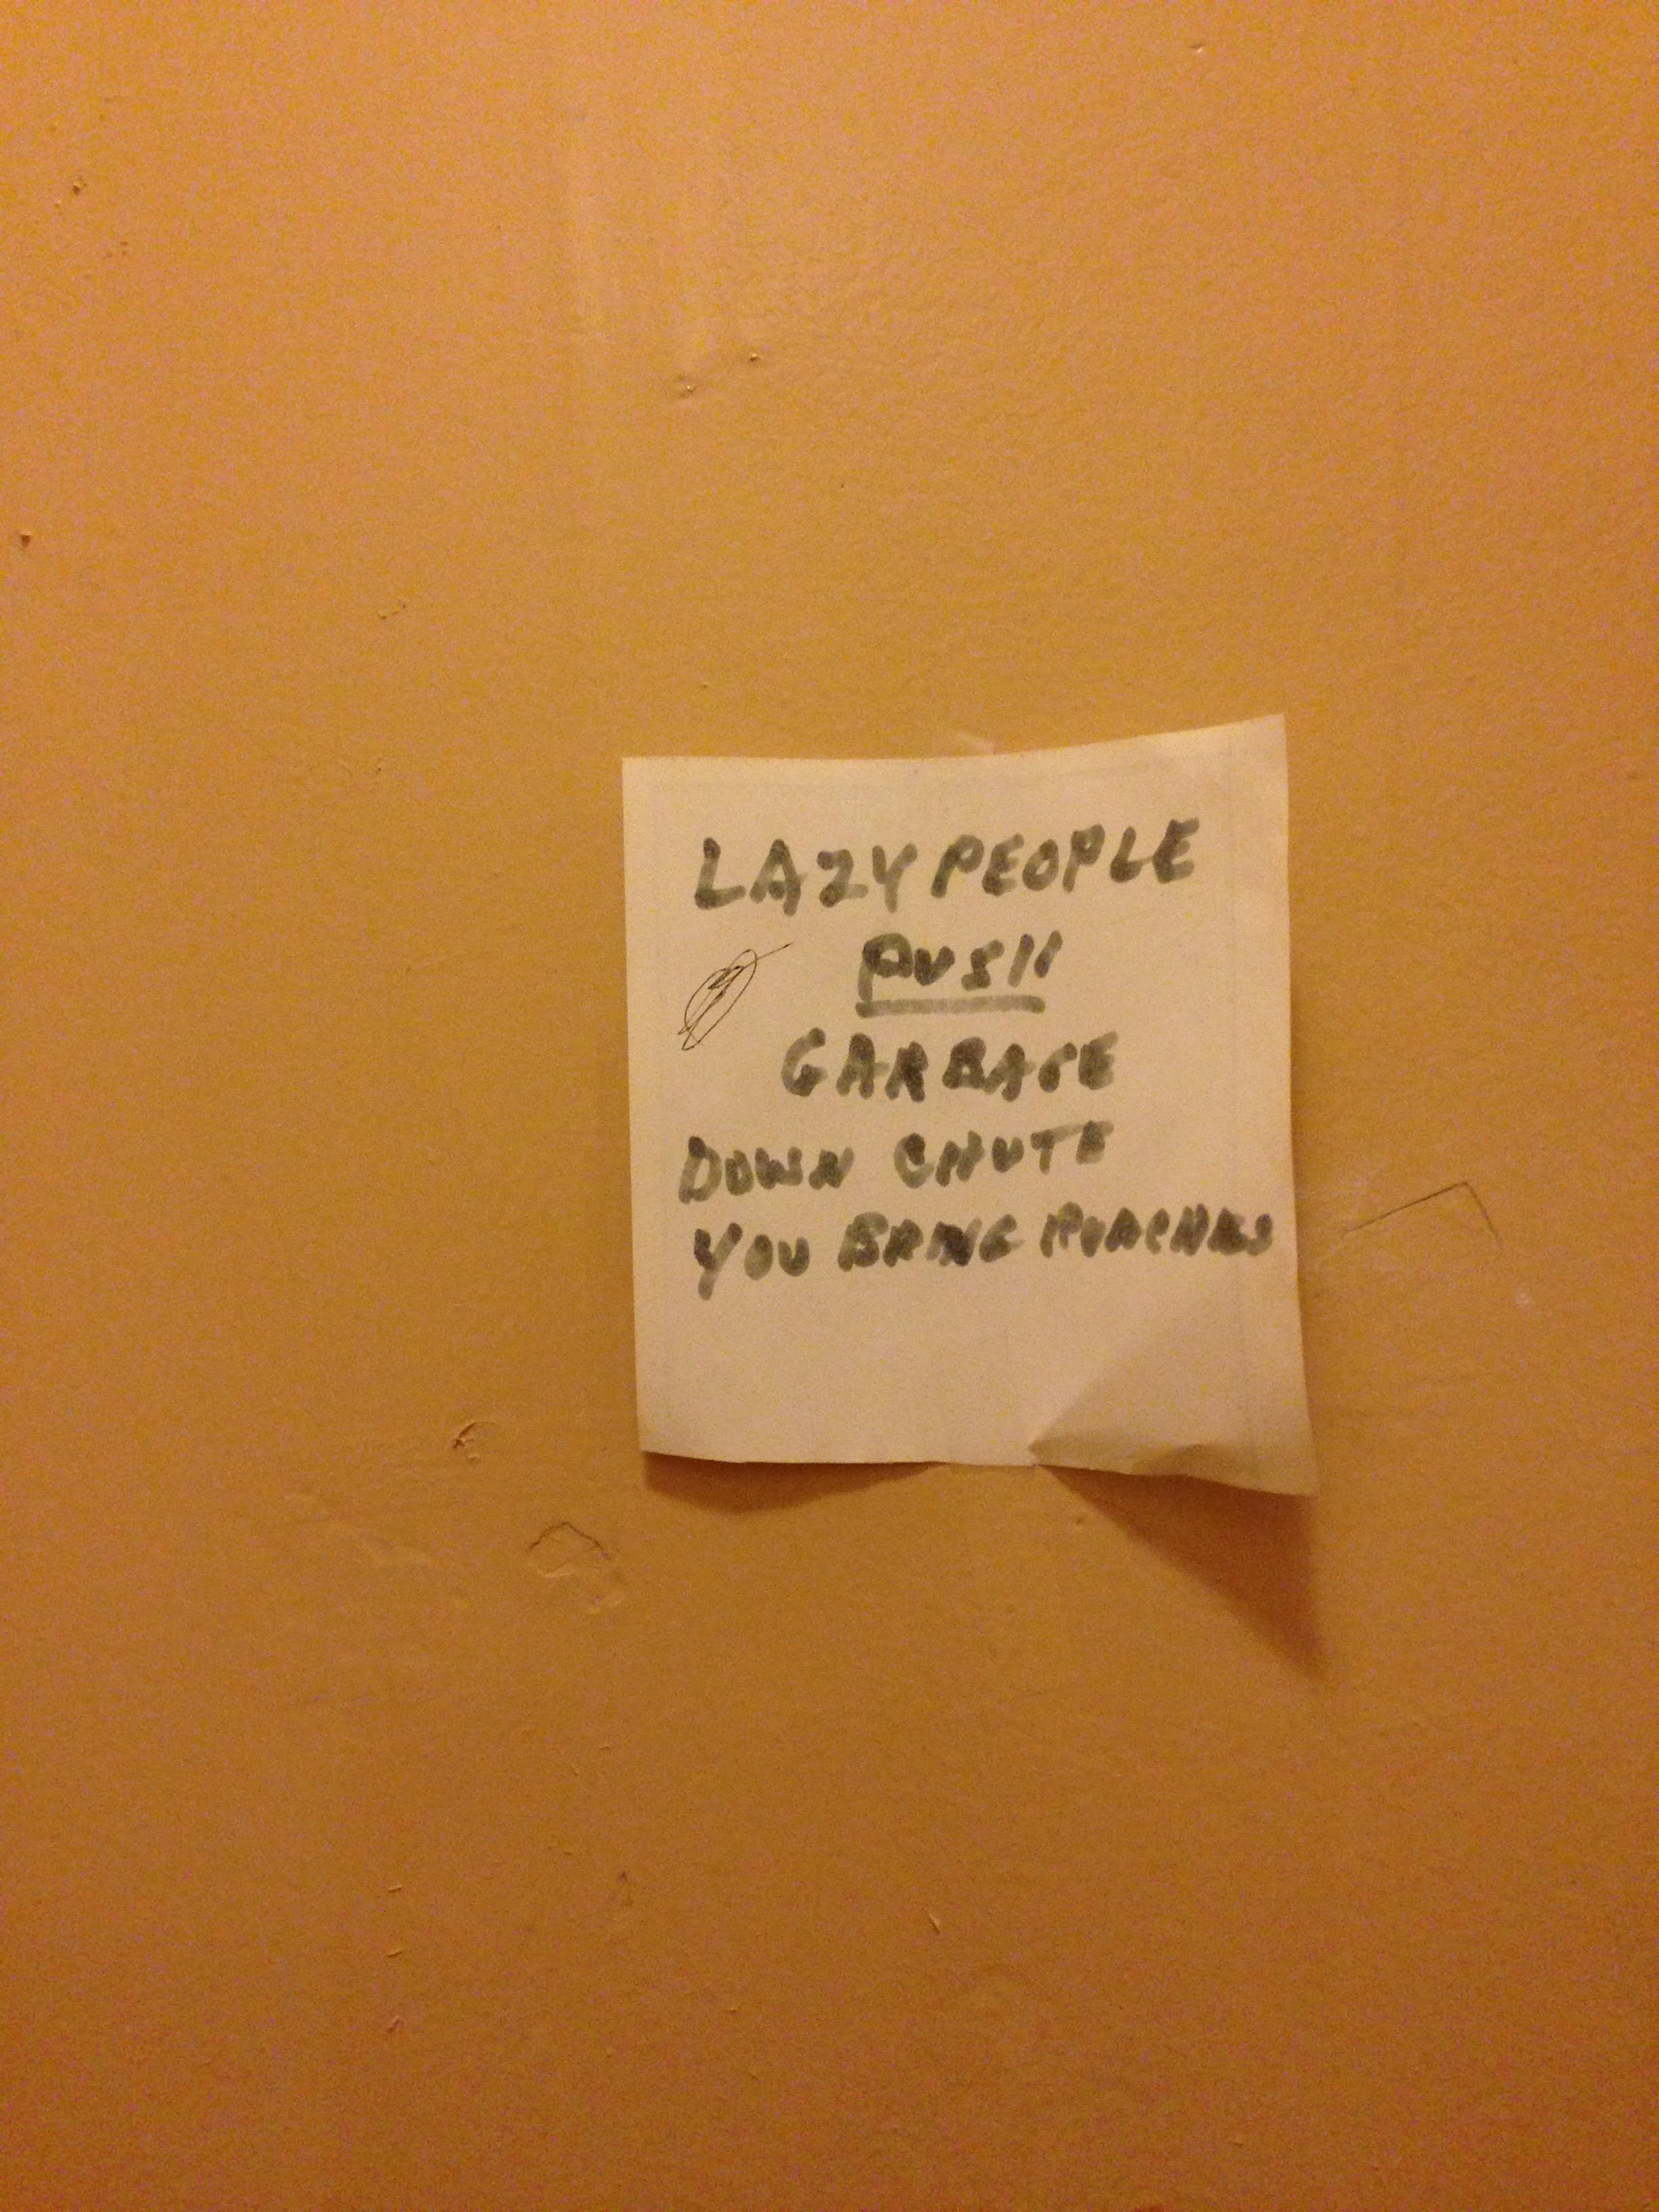 LAZY PEOPLE
PUSH
GARBAGE
DOWN CHUTE
YOU BRING ROACHES